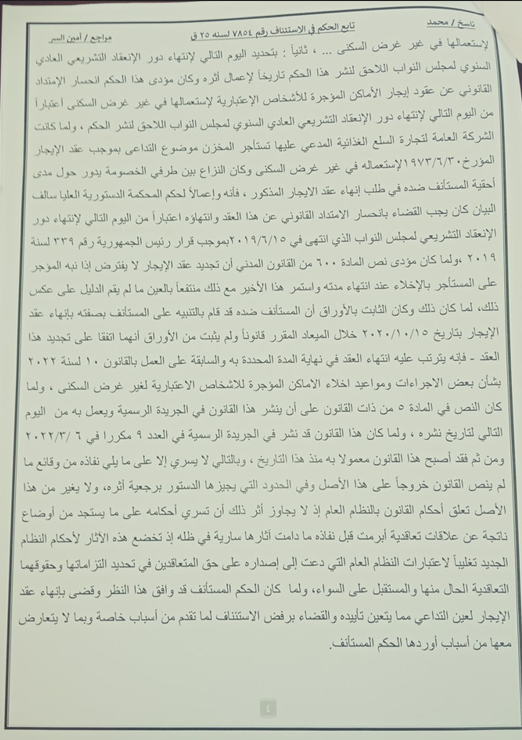 ناسخ / محمد
تابع الحكم في الاستئناف رقم ٧٨٥٤ لسنه ٢٥ ق
مراجع / أمين السر
لإستعمالها في غير غرض السكنى ... ، ثانياً : بتحديد اليوم التالي لإنتهاء دور الإنعقاد التشريعي العادي
السنوي لمجلس النواب اللاحق لنشر هذا الحكم تاريخاً لإعمال أثره وكان مؤدى هذا الحكم انحسار الإمتداد
القانوني عن عقود إيجار الأماكن المؤجرة للأشخاص الإعتبارية لإستعمالها في غير غرض السكنى أعتباراً
من اليوم التالي لإنتهاء دور الإنعقاد التشريعي العادي السنوي لمجلس النواب اللاحق لنشر الحكم ، ولما كانت
الشركة العامة لتجارة السلع الغذائية المدعي عليها تستأجر المخزن موضوع التداعى بموجب عقد الإيجار
المؤرخ ١٩٧٣/٦/٣٠ لإستعماله في غير غرض السكنى وكان النزاع بين طرفي الخصومة يدور حول مدى
أحقية المستأنف ضده في طلب إنهاء عقد الايجار المذكور ، فأنه وإعمالاً لحكم المحكمة الدستورية العليا سالف
البيان كان يجب القضاء بانحسار الامتداد القانوني عن هذا العقد وانتهاؤه اعتباراً من اليوم التالي لإنتهاء دور
الإنعقاد التشريعي لمجلس النواب الذي انتهى في ٢٠١٩/٦/١٥ بموجب قرار رئيس الجمهورية رقم ٣٣٩ لسنة
٢٠١٩ ،ولما كان مؤدى نص المادة ٦٠٠ من القانون المدني أن تجديد عقد الإيجار لا يفترض إذا نبه المؤجر
على المستأجر بالإخلاء عند انتهاء مدته واستمر هذا الأخير مع ذلك منتفعاً بالعين ما لم يقم الدليل على عكس
ذلك، لما كان ذلك وكان الثابت بالأوراق أن المستأنف ضده قد قام بالتنبيه على المستأنف بصفته بإنهاء عقد
الإيجار بتاريخ ٢٠٢٠/١٠/١٥ خلال الميعاد المقرر قانوناً ولم يثبت من الأوراق أنهما اتفقا على تجديد هذا
العقد - فإنه يترتب عليه انتهاء العقد في نهاية المدة المحددة به والسابقة على العمل بالقانون ١٠ لسنة ٢٠٢٢
بشأن بعض الاجراءات ومواعيد اخلاء الاماكن المؤجرة للاشخاص الاعتبارية لغير غرض السكنى ، ولما
كان النص في المادة ٥ من ذات القانون على أن ينشر هذا القانون في الجريدة الرسمية ويعمل به من اليوم
التالي لتاريخ نشره ، ولما كان هذا القانون قد نشر في الجريدة الرسمية في العدد ٩ مكررا في ٢٠٢٢/٣/ ٦
ومن ثم فقد أصبح هذا القانون معمولا به منذ هذا التاريخ ، وبالتالي لا يسري إلا على ما يلي نفاذه من وقائع ما
لم ينص القانون خروجاً على هذا الأصل وفي الحدود التي يجيزها الدستور برجعية أثره، ولا يغير من هذا
الأصل تعلق أحكام القانون بالنظام العام إذ لا يجاوز أثر ذلك أن تسري أحكامه على ما يستجد من أوضاع
ناتجة عن علاقات تعاقدية أبرمت قبل نفاذه ما دامت أثارها سارية في ظله إذ تخضع هذه الأثار لأحكام النظام
الجديد تغليباً لاعتبارات النظام العام التي دعت إلى إصداره على حق المتعاقدين في تحديد التزاماتها وحقوقهما
التعاقدية الحال منها والمستقبل على السواء، ولما كان الحكم المستأنف قد وافق هذا النظر وقضى بإنهاء عقد
الإيجار لعين التداعي مما يتعين تأييده والقضاء برفض الاستئناف لما تقدم من أسباب خاصة وبما لا يتعارض
معها من أسباب أوردها الحكم المستأنف.
٤